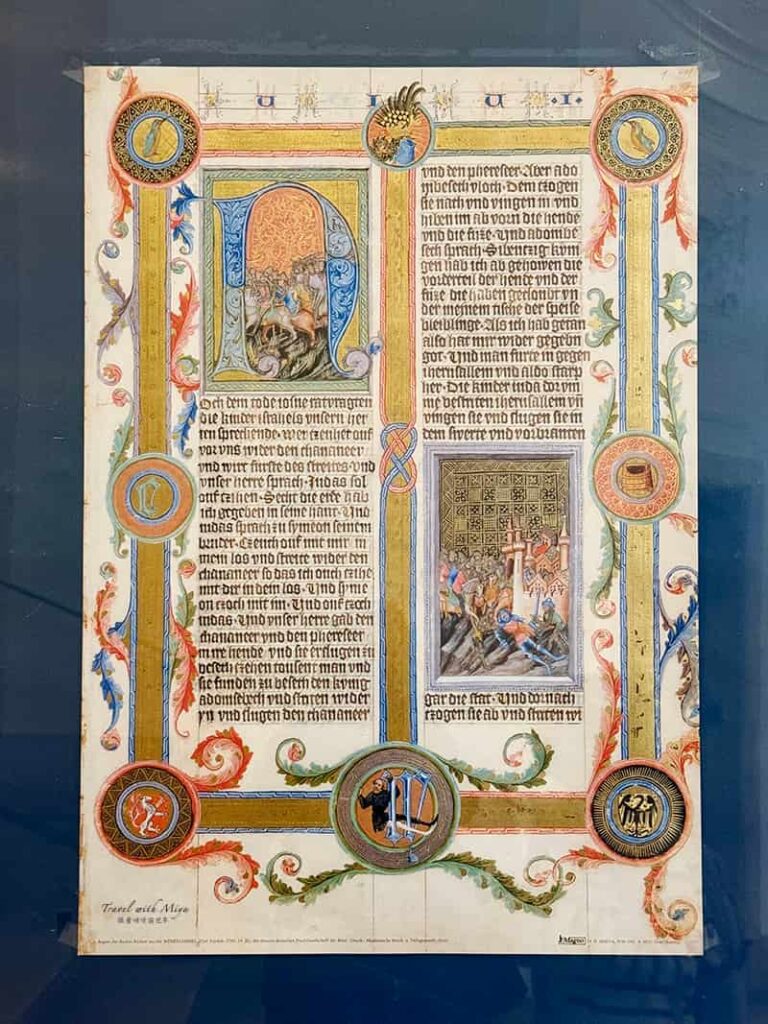 U I U . I .
Och dem tode iosue ratvragten
die kinder israhels vnsern her
ren sprechende · wer czeuhet ouf
vor vns wider den chananeer
vnd wirt furste des streites · vnd
vnser herre sprach · Iudas sol
ouf czihen · Secht die erde hab
ich gegeben in seine hant · Vnd
iudas sprach zu symeon seinem
bruder · Czeuch ouf mit mir in
mein los vnd streite wider den
chananeer so das ich ouch czihe
mit dir in dein los · Vnd syme
on czoch mit im · Vnd ouf czoch
iudas · Vnd vnser herre gab den
chananeer vnd den phereseer
in ire hende · vnd sie erslugen zu
besech czehen tousent man vnd
sie funden zu besech den kynig
adombesech vnd striten wider
yn vnd slugen den chananeer
vnd den phereseer · Aber ado
nibesech vloch · Dem czogen
sie nach vnd vingen in vnd
hiben im ab vorn die hende
vnd die fuze · Vnd adombe
sech sprach · Sibenczig kyni
gen hab ich ab gehowen die
vorderteil der hende vnd der
fuze die haben gecloubt vn
der meinem tische der speise
bleiblinge · Als ich hab getan
also hat mir wider gegebn
got · Vnd man furte in gegen
iherusalem vnd aldo starp
her · Die kinder iuda dor vm
me bestriten iherusalem vn
vingen sie vnd slugen sie in
dem swerte vnd vorbranten
gar die stat · Vnd dornach
czogen sie ab vnd striten wi
Travel with Miyu